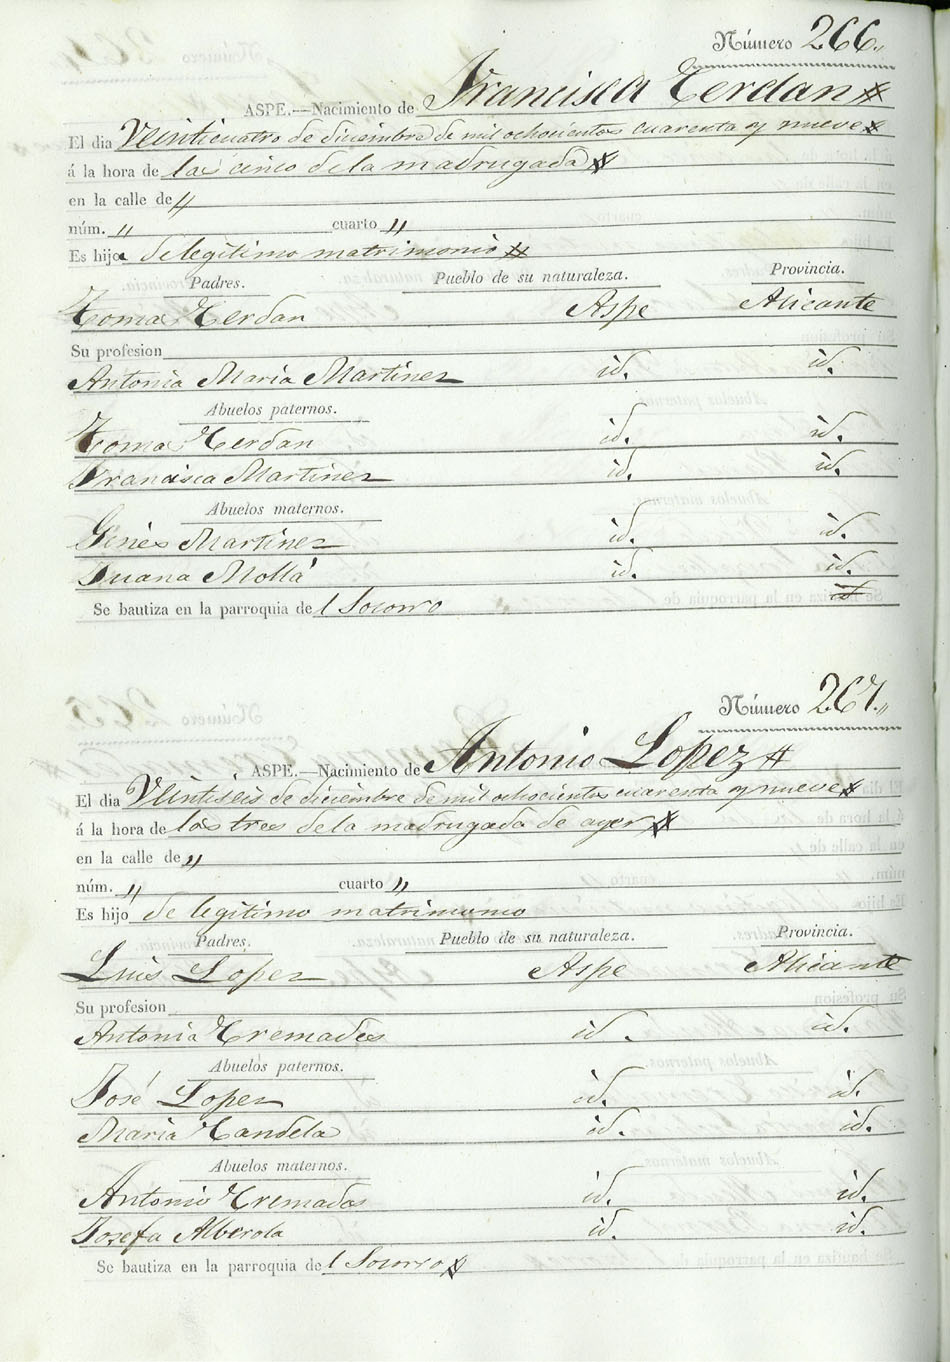 Número 266.
ASPE.—Nacimiento de Francisca Cerdan
El dia Veinticuatro de diciembre de mil ochocientos cuarenta y nueve
á la hora de las cinco de la madrugada
en la calle de "
núm. " cuarto "
Es hija de legitimo matrimonio
Padres. Pueblo de su naturaleza. Provincia.
Toma Cerdan Aspe Alicante
Su profesion
Antonia Maria Martinez id. id.
Abuelos paternos.
Toma Cerdan id. id.
Francisca Martinez id. id.
Abuelos maternos.
Ginés Martinez id. id.
Juana Mollá id. id.
Se bautiza en la parroquia del Socorro
Número 267.
ASPE.—Nacimiento de Antonio Lopez
El dia Veintiseis de diciembre de mil ochocientos cuarenta y nueve
á la hora de las tres de la madrugada de ayer
en la calle de "
núm. " cuarto "
Es hijo de legitimo matrimonio
Padres. Pueblo de su naturaleza. Provincia.
Luis Lopez Aspe Alicante
Su profesion
Antonia Cremades id. id.
Abuelos paternos.
José Lopez id. id.
Maria Candela id. id.
Abuelos maternos.
Antonio Cremades id. id.
Josefa Alberola id. id.
Se bautiza en la parroquia del Socorro